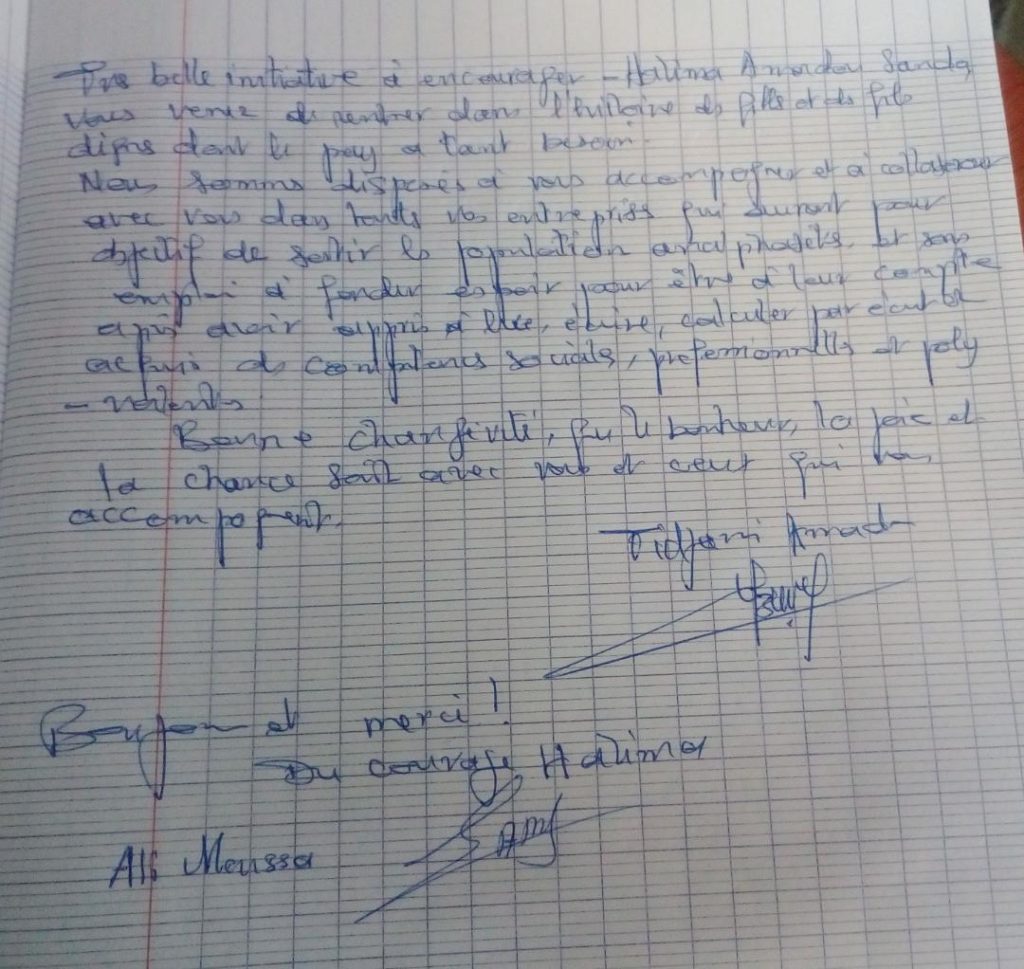 Très belle initiative à encourager - Halima Amadou Sanda
vous venez de rentrer dans l'histoire des filles et des fils
dignes dont le pays a tant besoin.
Nous sommes disposés à vous accompagner et à collaborer
avec vous dans toutes vos entreprises qui auront pour
objectif de sortir les populations analphabètes et sans
emploi à fonder espoir pour être à leur compte
après avoir appris à lire, écrire, calculer par écrit et
acquis des compétences sociales, professionnelles et poly
- valentes
Bonne longévité, que le bonheur, la joie et
la chance soit avec vous et ceux qui vous
accompagnent.
Tidjani Amad
Bonjour et merci !
Du courage Halima
Ali Moussa